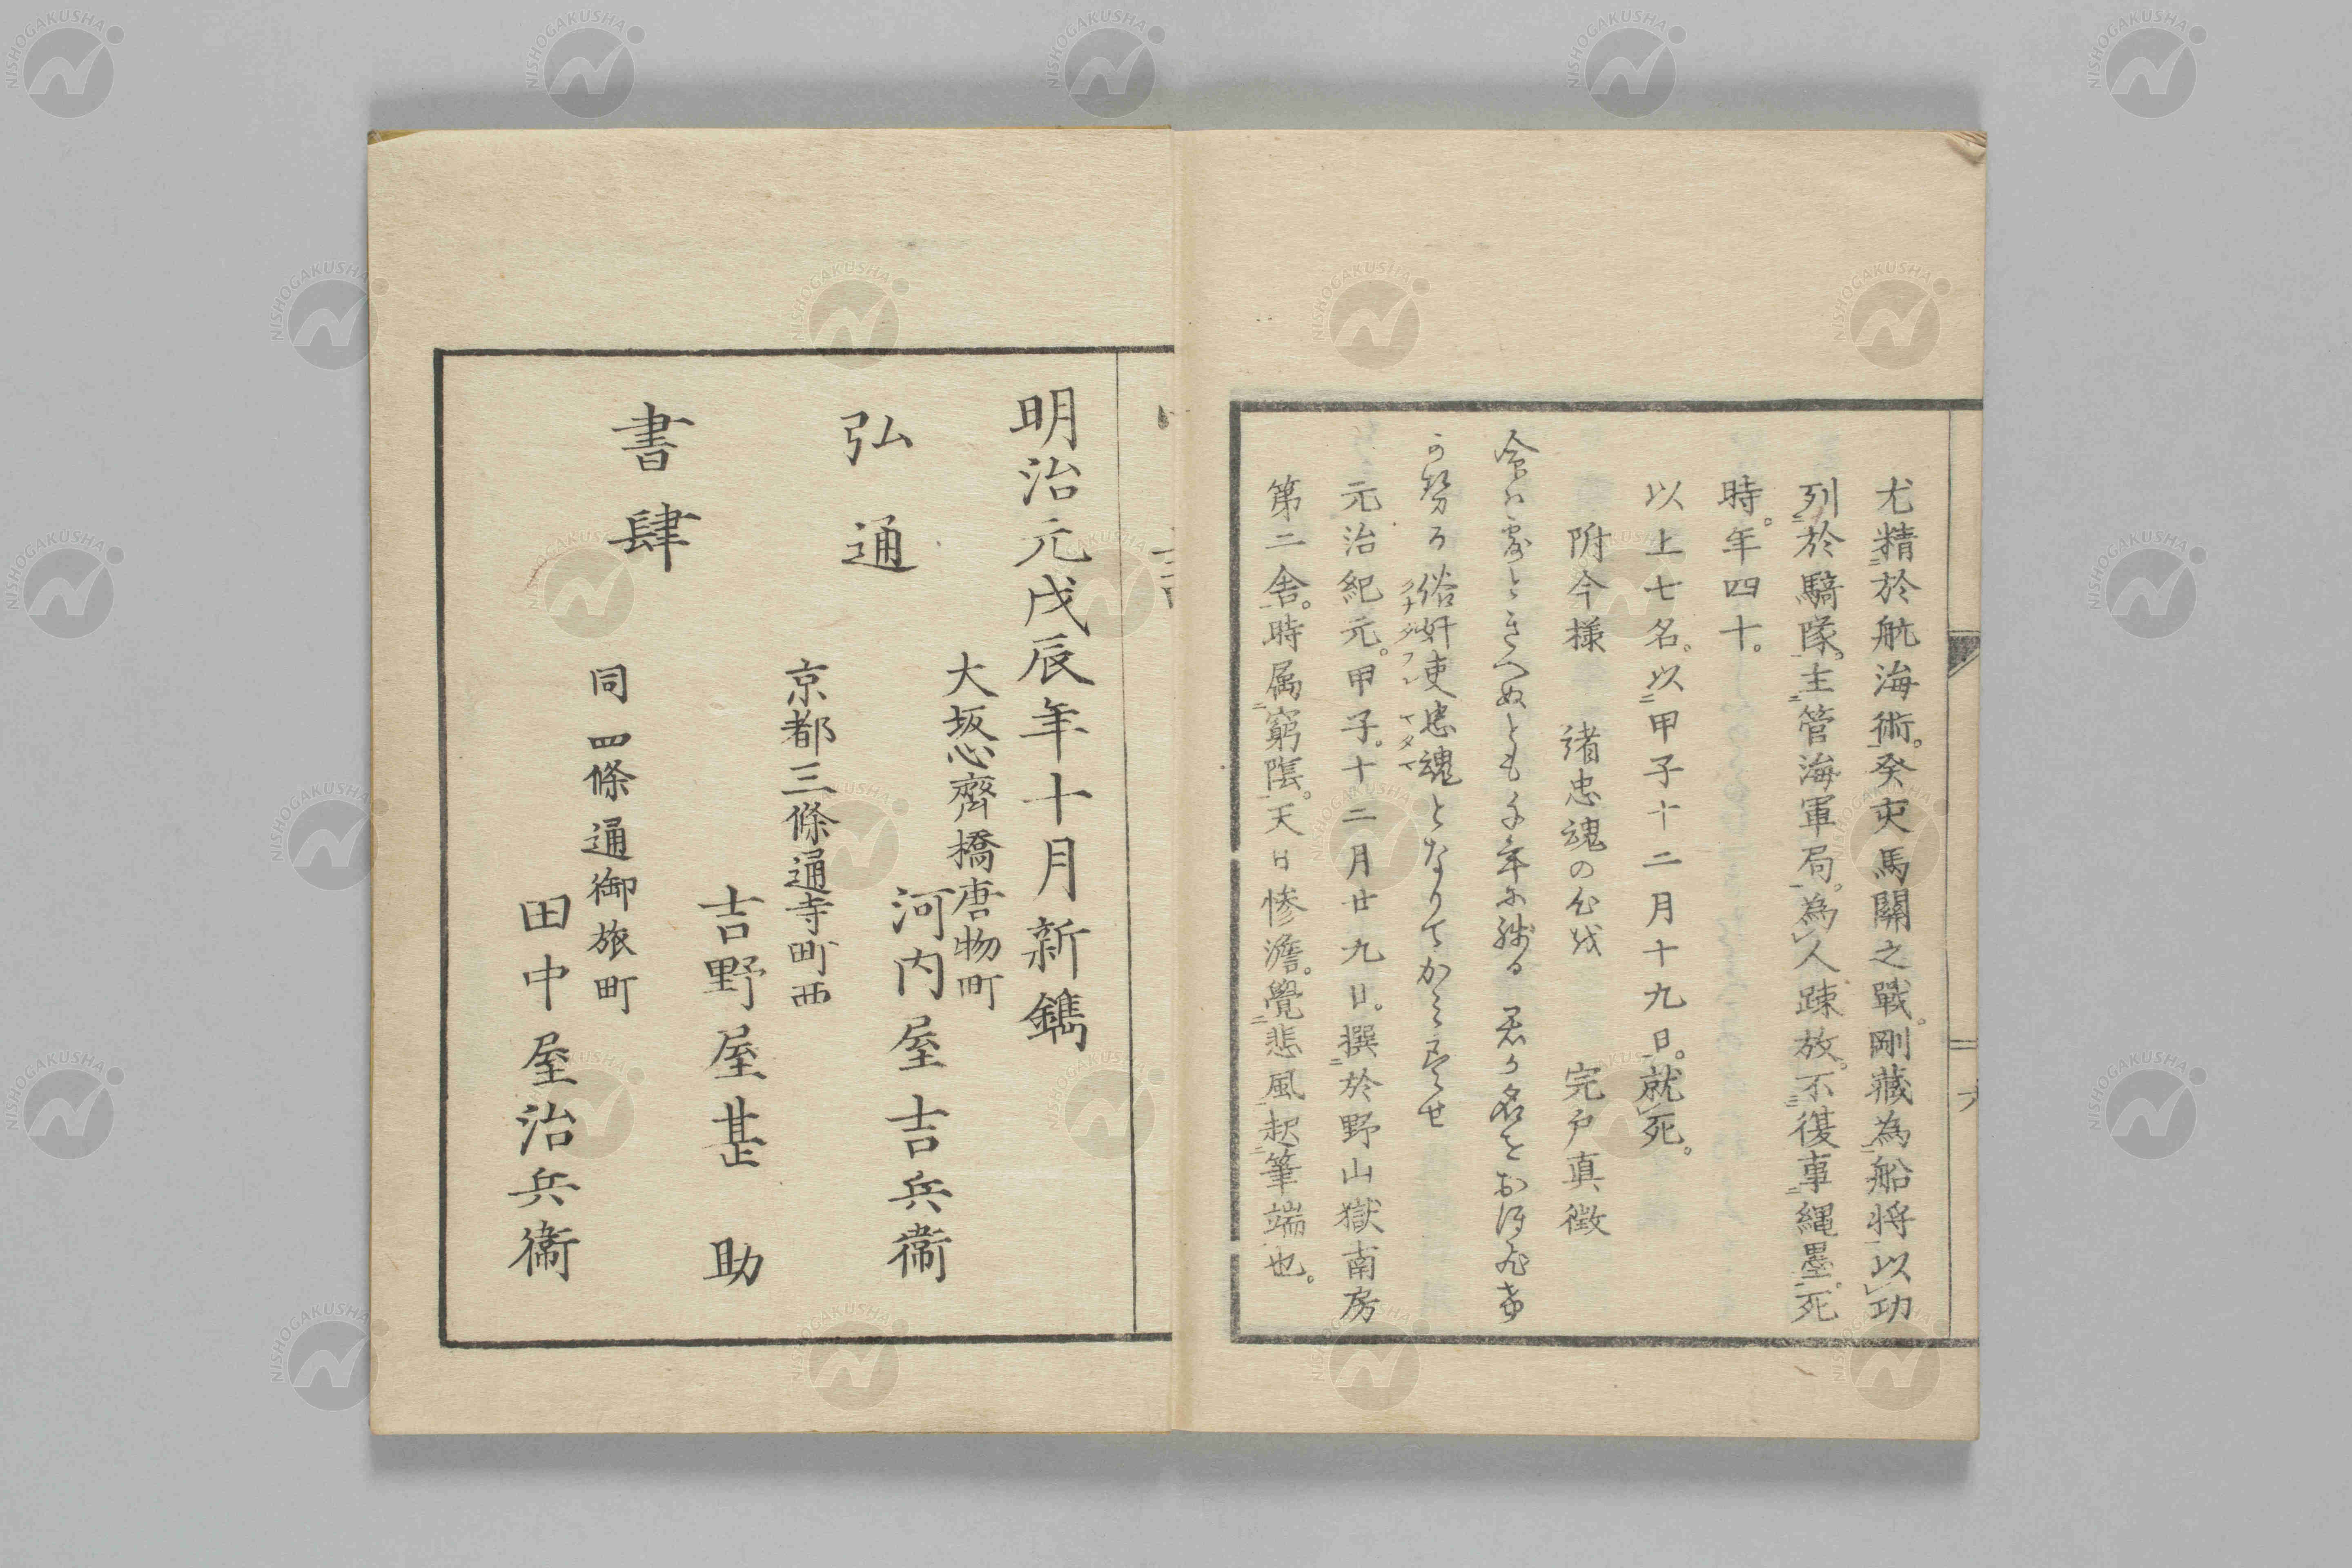 尤精於航海術。癸亥馬關之戰。剛藏為船將以功
列於騎隊。主管海軍局。為人疎放。不復事縄墨。死
時。年四十。
以上七名。以甲子十二月十九日。就死。
附今様 諸忠魂の公哉 宍戸真徴
命は露ときへぬとも千年に残る君が名を
俗奸吏忠魂となりて
クナダフレ
元治紀元。甲子。十二月廿九日。撰於野山獄南房
第二舎。時属窮陰。天日惨澹。覺悲風起筆端也。
六
明治元戊辰年十月新鐫
弘通
書肆
大坂心齊橋唐物町
河内屋吉兵衞
京都三條通寺町西
吉野屋甚助
同四條通御旅町
田中屋治兵衞
NISHOGAKUSHA